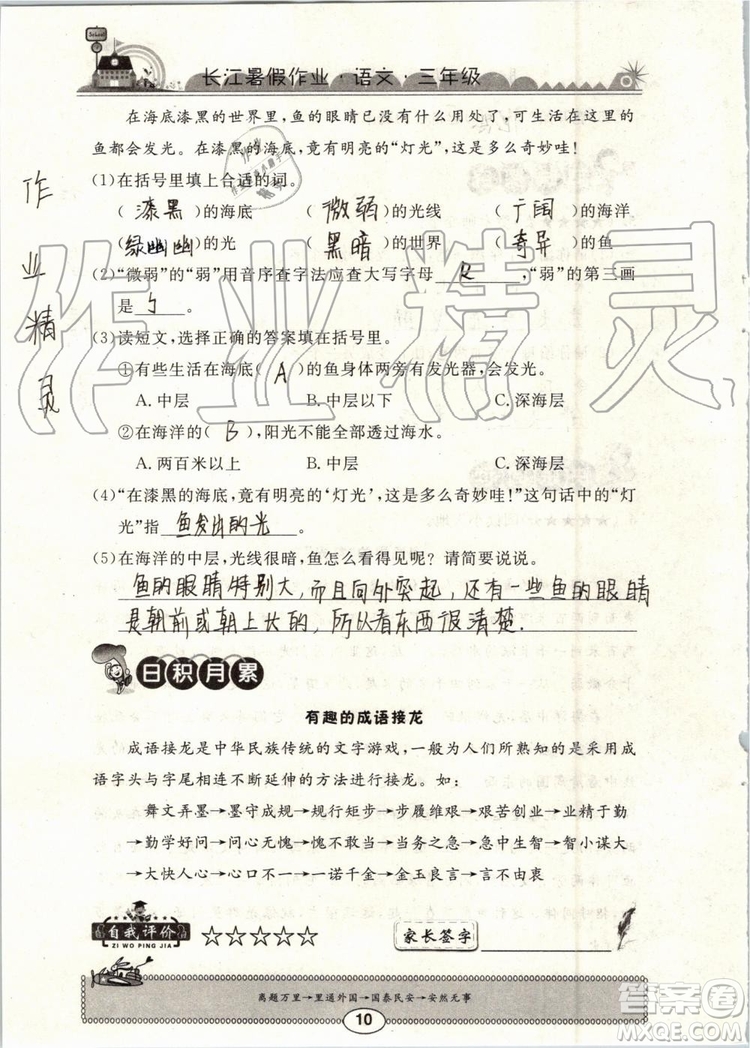 School
长江暑假作业·语文·三年级
在海底漆黑的世界里,鱼的眼睛已没有什么用处了,可生活在这里的
鱼都会发光。在漆黑的海底,竟有明亮的“灯光”,这是多么奇妙哇!
(1)在括号里填上合适的词。
(漆黑)的海底 (微弱)的光线 (广阔)的海洋
(绿幽幽)的光 (黑暗)的世界 (奇异)的鱼
(2)“微弱”的“弱”用音序查字法应查大写字母 R ,“弱”的第三画
是 ㄅ 。
(3)读短文,选择正确的答案填在括号里。
①有些生活在海底( A )的鱼身体两旁有发光器,会发光。
A.中层 B.中层以下 C.深海层
②在海洋的( B ),阳光不能全部透过海水。
A.两百米以上 B.中层 C.深海层
(4)“在漆黑的海底,竟有明亮的‘灯光’,这是多么奇妙哇!”这句话中的“灯
光”指 鱼发出的光 。
(5)在海洋的中层,光线很暗,鱼怎么看得见呢?请简要说说。
鱼的眼睛特别大,而且向外突起,还有一些鱼的眼睛
是朝前或朝上长的,所以看东西很清楚.
作业精灵
作业精灵
日积月累
有趣的成语接龙
成语接龙是中华民族传统的文字游戏,一般为人们所熟知的是采用成
语字头与字尾相连不断延伸的方法进行接龙。如:
舞文弄墨→墨守成规→规行矩步→步履维艰→艰苦创业→业精于勤
→勤学好问→问心无愧→愧不敢当→当务之急→急中生智→智小谋大
→大快人心→心口不一→一诺千金→金玉良言→言不由衷
自我评价
ZI WO PING JIA
☆☆☆☆☆
家长签字
离题万里→里通外国→国泰民安→安然无事
10
答案圈
MXQE.COM